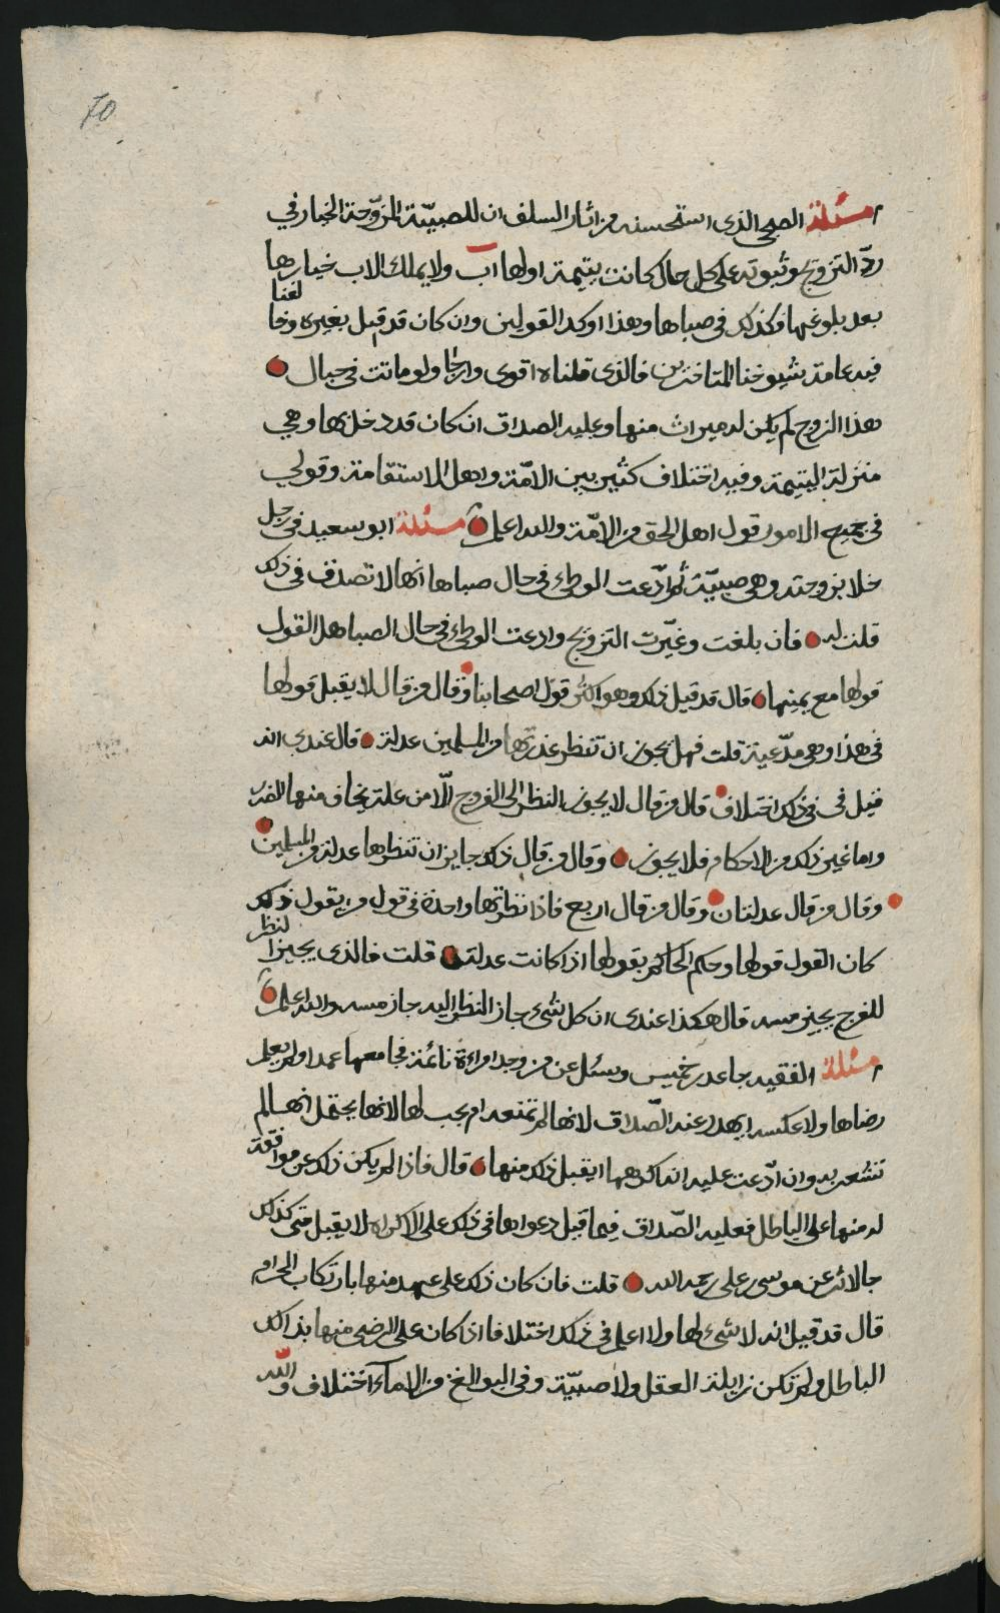 70
مسئلة الصبحي الذي استحسنه من اثار السلف ان للصبيّة المزوّجة الخيار في
ردّ التزويج وثبوته على كل حال كانت يتيمة او لها اب ولا يملك الاب خيارها
بعد بلوغها فكذلك في صباها وهذا اوكد القولين وان كان قد قيل بغيره وخالفنا
فيه عامة شيوخنا المتاخرين فالذي قلناه اقوى وارجا ولو ماتت في حبال
هذا الزوج لم يكن له ميراث منها وعليه الصداق ان كان قد دخل بها وهي
منزلة اليتيمة وفيه اختلاف كثير بين الامّة واهل الاستقامة وقولي
في جميع الامور قول اهل الحق من الامّة والله اعلم مسئلة ابو سعيد في رجل
خلا بزوجته وهي صبيّة ثم ادّعت الوطئ في حال صباها انها لا تصدق في ذلك
قلت له فان بلغت وغيّرت التزويج وادعت الوطئ في حال الصبا هل القول
قولها مع يمينها قال قد قيل ذلك وهو اكثر قول اصحابنا وقال من قال لا يقبل قولها
في هذا وهي مدّعية قلت فهل يجوز ان تنظر عذرتها من المسلمين عدلة قال عندي انه
قيل في في ذلك اختلاف قال من قال لا يجوز النظر الى الفروج الّا من علة يخاف منها الضرر
واما غير ذلك من الاحكام فلا يجوز وقال من قال ذلك جايز ان تنظرها عدلة من المسلمين
وقال من قال عدلتان وقال من قال اربع فاذا نظرتها واحدة في قول من يقول ذلك
كان القول قولها وحكم الحاكم بقولها اذا كانت عدلة قلت فالذي يجيز النظر
للفرج يجيز مسه قال هكذا عندي ان كل شيء جاز النظر اليه جاز مسه والله اعلم
مسئلة الفقيه جاعد بن خميس وسئل عن من وجد امراءة نائمة فجامعها عمدا ولم يعلم
رضاها ولا عكسه ايهدر عنه الصّداق لانها لم تمنعه ام يجب لها لانها يحتمل انها لم
تشعر به وان ادّعت عليه انه اكرهها ايقبل ذلك منها قال فاذا لم يكن ذلك عن موافقة
له منها على الباطل فعليه الصّداق فيما قيل دعواها في ذلك على الاكراه لا يقبل متى كذلك
جا لاثر عن موسى بن علي رحمه الله قلت فان كان ذلك على عهد منها بارتكاب الحرام
قال قد قيل انه لا شيء لها ولا اعلم في ذلك اختلافا اذا كان على الرضى منها بذلك
الباطل ولم تكن زايلة العقل ولا صبيّة وفي البوالغ من الاماء اختلاف والله